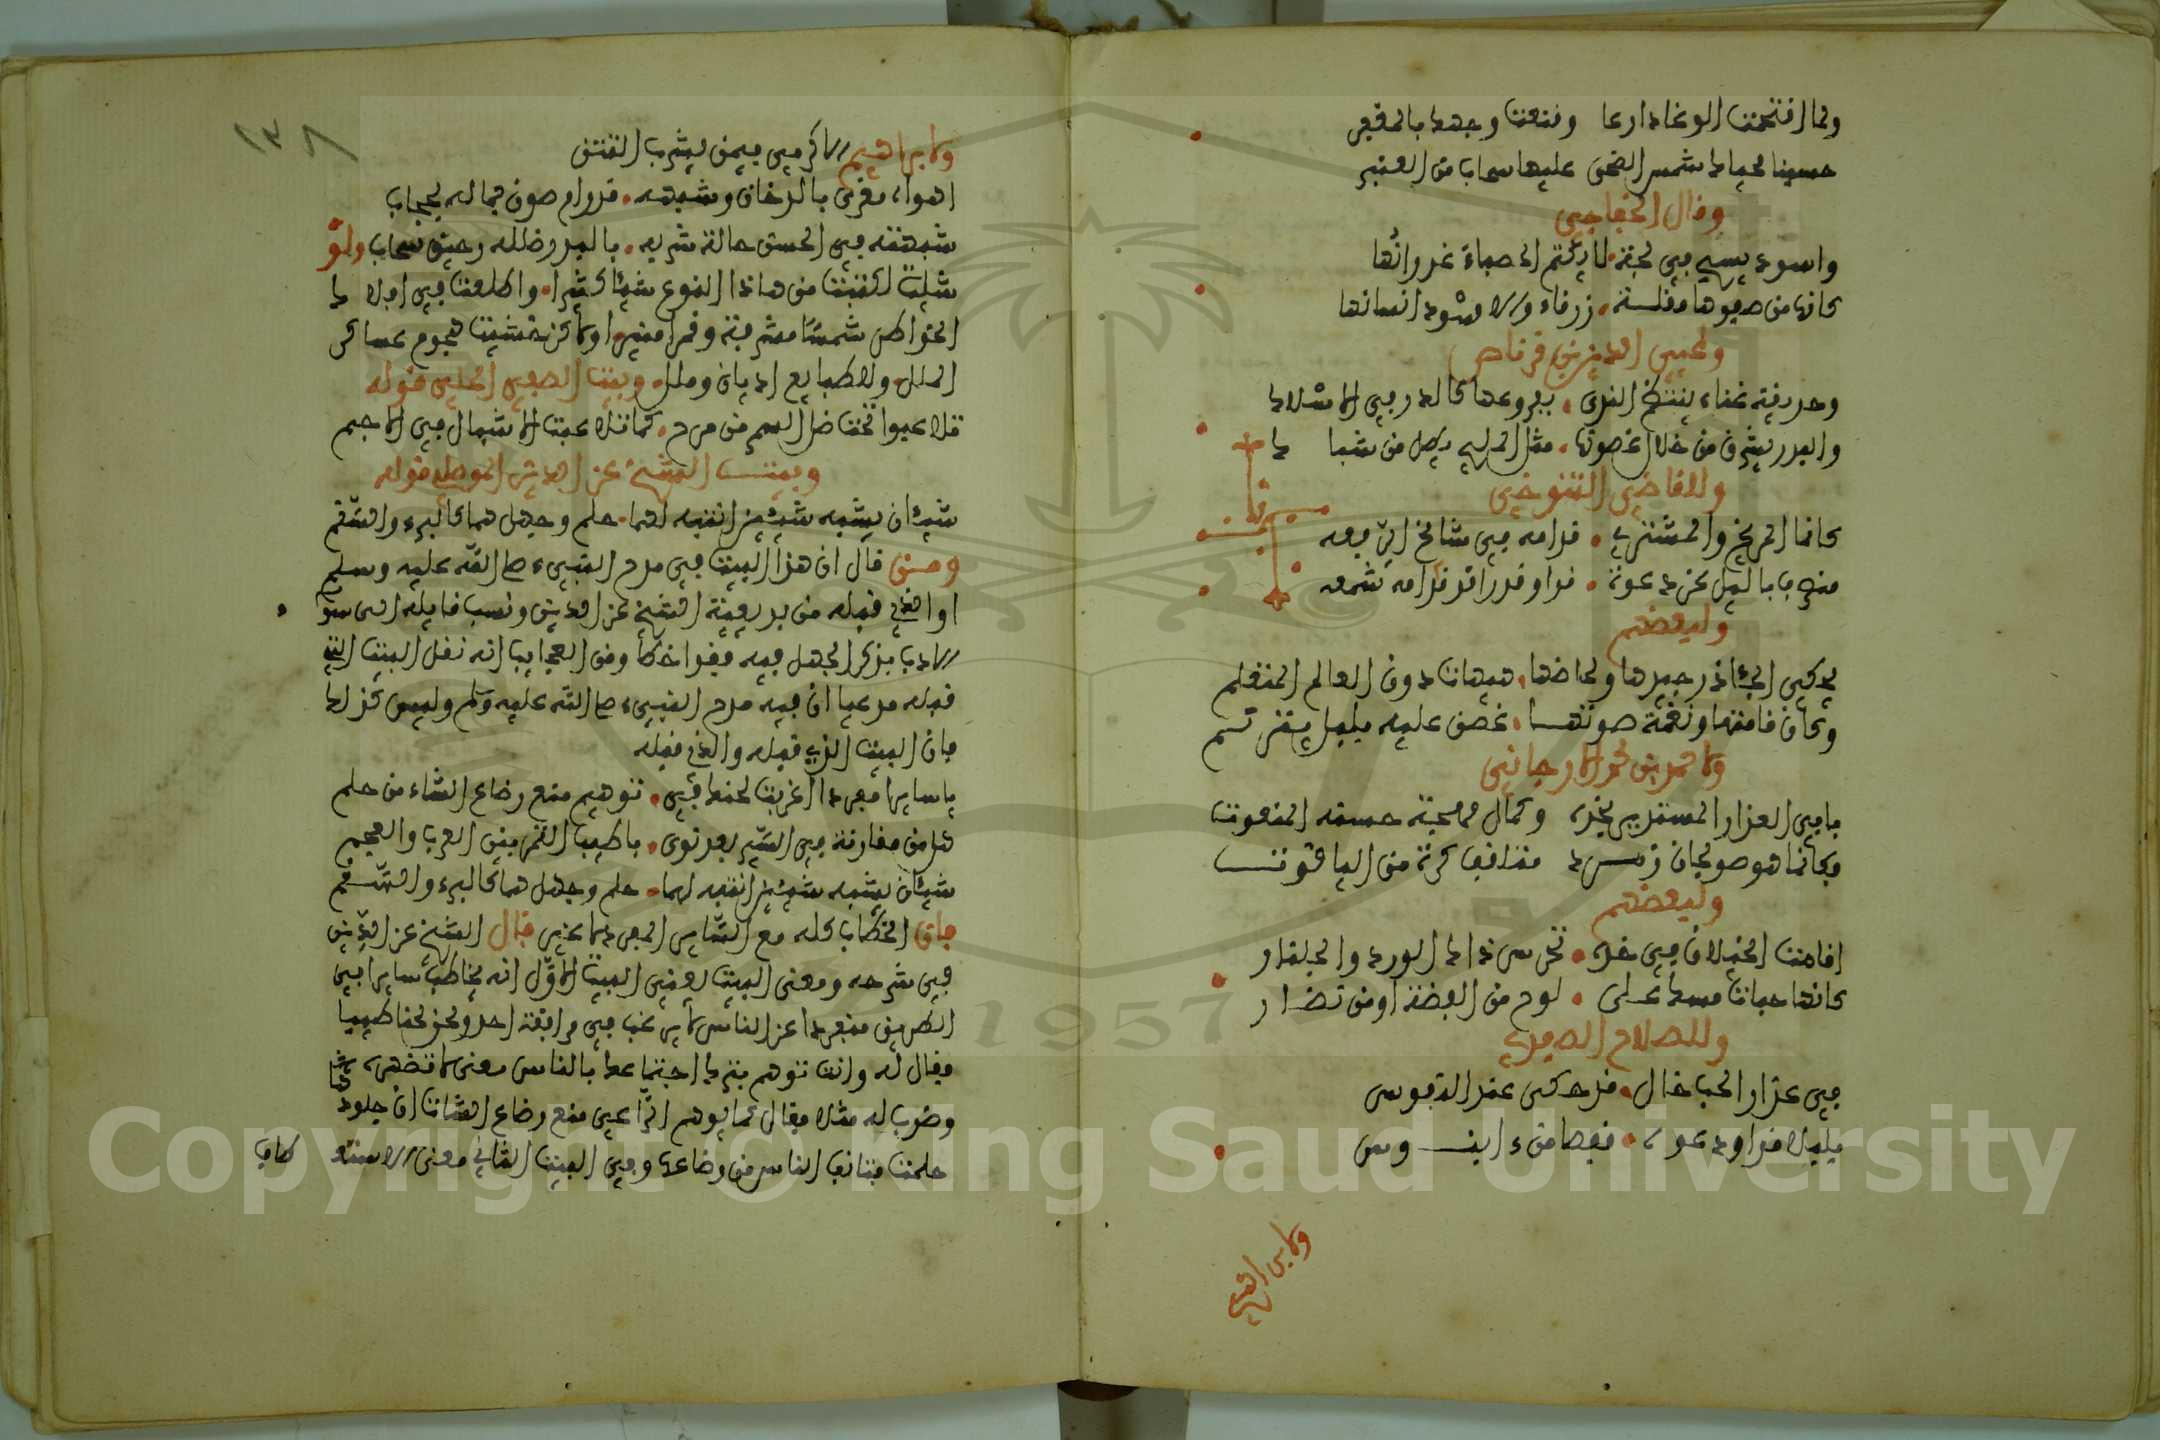 ولما اقتحمت الوغا دارعا وقنعت وجهك بالمغفر
حسبنا محياك شمس الضحى عليها سحاب من العنبر
وقال الخفاجي
واسود يسبح في لجة لا يكتم الحصباء غدرانها
كانها من صفوها مقلة زرقاء والاسود انسانها
ولمجيي الدين بن قرناص
وحديقة غناء ينتظم الندى بفروعها كالدر في الاسلاك
والبدر يشرق من خلال غصونها مثل المليح يطل من شباك
وللقاضي التنوخي
كانما المريخ والمشتري قدامه في شامخ الرفعه
منصرف بالليل عن دعوة قد اوقدت قدامه شمعه
ولبعضهم
يحكي الجآذر جيدها ولحاظها هيهات دون العالم المتعلم
وكان قامتها ونغمة صوتها غصن عليه بلبل يترنم
ولاحمد بن محمد الارجاني
يا في العذار المستدير بخده وكمال بهجة حسنه المنعوت
فكانما هو صولجان زمرد متلقف كرة من الياقوت
ولبعضهم
اقامت الخيلان في خده تحرس ذاك الورد والجلنار
كانها حبات مسك على لوح من الفضة او من نضار
وللصلاح الصفدي
في عذار الحب خال قد حكى عند النفوس
بلبلا قد اودعوه قفصا من ءابنوس
ولابراهيم
١٣٨
ولابراهيم الاكرمي فيمن يشرب التتن
اهواه مغرى بالدخان وشبهه قد رام صون جماله بحجاب
شبهته في الحسن حالة شربه بالبدر ظلله رقيق سحاب ولو
شئت لكتبت من هاذا النوع شيئا كثيرا واطلعت في افلاك
الخواطر شمسا مشرقة وقمرا منيرا ولاكن خشيت هجوم عساكر
الملل وللطبايع اديان وملل وبيت الصفي الحلي قوله
تلاعبوا تحت ظل السمر من مرح كما تلاعبت الاشبال في الاجم
وبيت الشيخ عز الدين الموصلي قوله
شيئان يشبه شيئين انتبه لهما حلم وجهل هما كالبرء والسقم
ومن قال ان هذا البيت في مدح النبيء صلى الله عليه وسلم
او الذي قبله من بديعية الشيخ عز الدين ونسب قايله الى سوء
الادب بذكر الجهل فيه فقد اخطا ومن العجايب انه نقل البيت الذي
قبله مدعيا ان فيه مدح النبيء صلى الله عليه وسلم وليس كذلك
فان البيت الذي قبله والذي قبله
يا سايرا مفردا اغربت لحنك في توهم منع رضاع الشاء من حلم
هل من مفارقة في السير بعد نوى يا طيب القمر بين العرب والعجم
شيئان يشبه شيئين انتبه لهما حلم وجهل هما كالبرء والسقم
فان الخطاب كله مع الساير المفرد لا غير قال الشيخ عز الدين
في شرحه ومعنى البيت يعني البيت الاول انه يخاطب سايرا في
الطريق منفردا عن الناس لا يرغب في مرافقة احد ولحن لحنا طيبا
فقال له وانت توهم بترك اجتماعك بالناس معنى لا تظهره
وضرب له مثلا فقال كما يوهم الراعي منع رضاع الشاة ان جلود
حلمت فتانف الناس من رضاعها وفي البيت الثاني معنى الاستعطاف